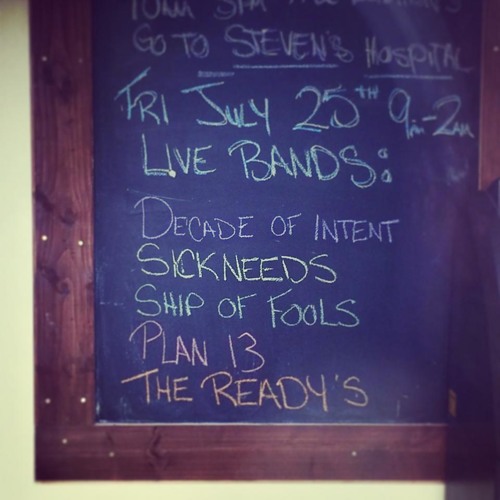 GO TO STEVEN'S HOSPITAL
FRI JULY 25TH 9PM-2AM
LIVE BANDS:
DECADE OF INTENT
SICKNEEDS
SHIP OF FOOLS
PLAN 13
THE READY'S